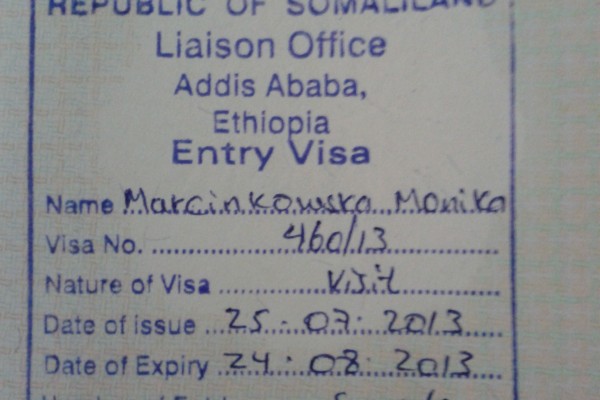 REPUBLIC OF SOMALILAND
Liaison Office
Addis Ababa,
Ethiopia
Entry Visa
Name Marcinkowska Monika
Visa No. 460/13
Nature of Visa Visit
Date of issue 25.07.2013
Date of Expiry 24.08.2013